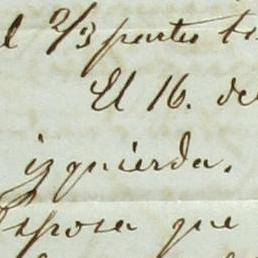 2/3 partes
El 16. de
izquierda.
Esposa que